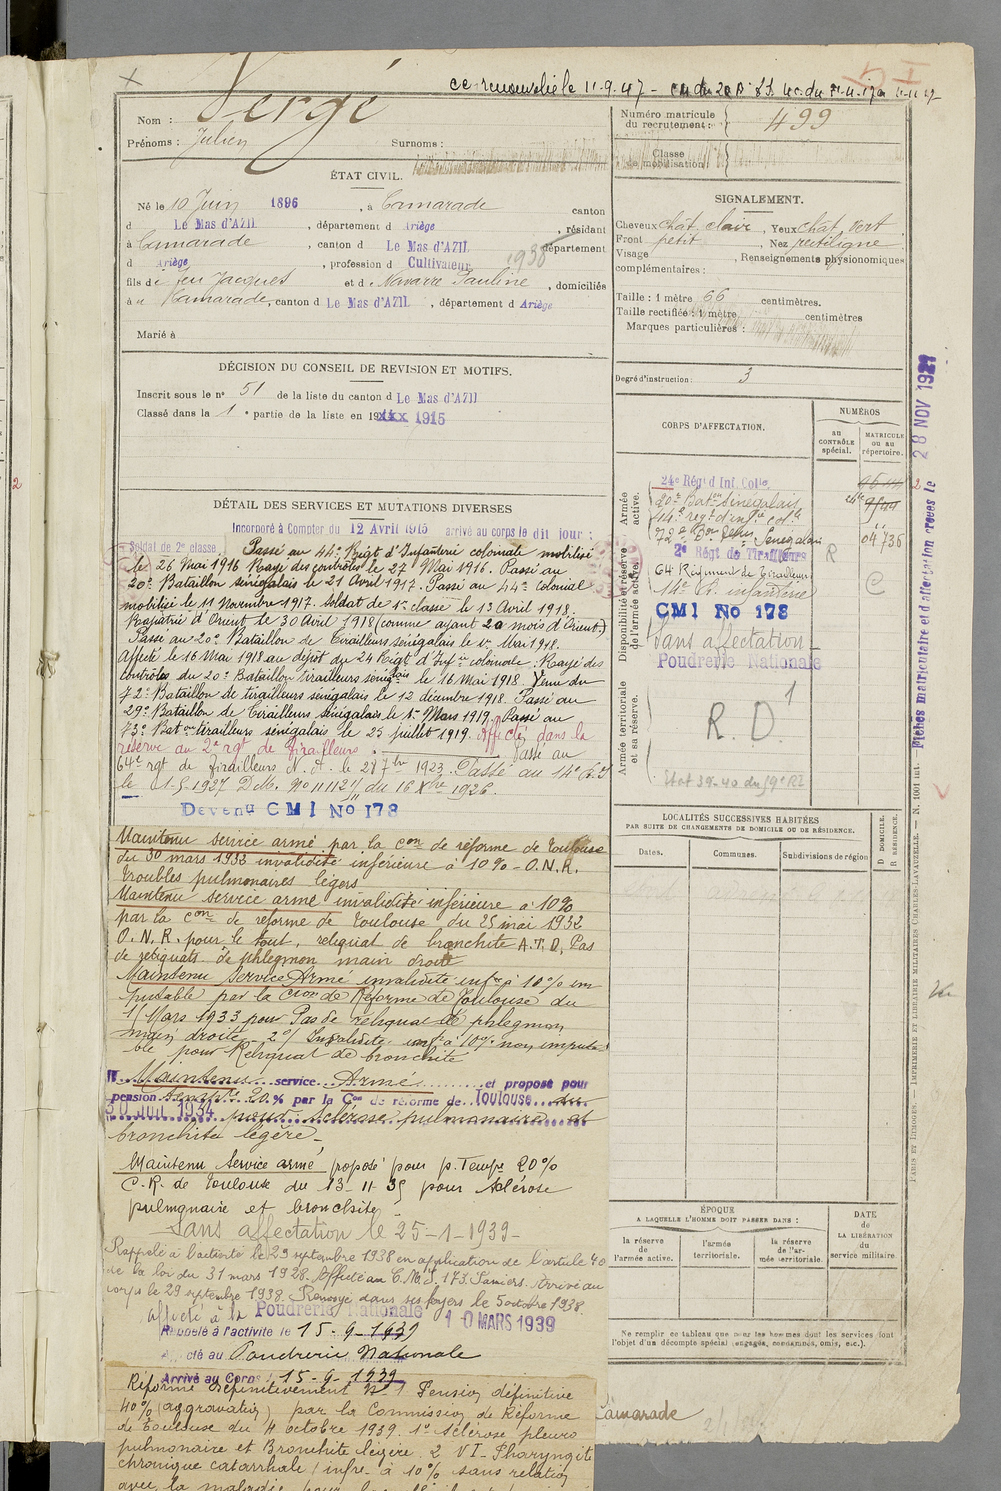 ce renouvelé le 11.9.47 -
Vergé
Nom :
Prénoms : Julien Surnoms :
ÉTAT CIVIL.
Né le 10 Juin 1896, à Camarade canton
d Le Mas d'AZIL, département d Ariège, résidant
à Camarade, canton d Le Mas d'AZIL département
d Ariège, profession d Cultivateur 1938
fils de feu Jacques et de Navarre Pauline, domiciliés
à Camarade, canton d Le Mas d'AZIL, département d Ariège
Marié à
DÉCISION DU CONSEIL DE REVISION ET MOTIFS.
Inscrit sous le n° 51 de la liste du canton d Le Mas d'AZIL
Classé dans la 1e partie de la liste en 19xxx 1915
DÉTAIL DES SERVICES ET MUTATIONS DIVERSES
Incorporé à Compter du 12 Avril 1915 arrivé au corps le dit jour :
Soldat de 2e classe. Passé au 44e Régt d'Infanterie coloniale mobilisé
le 26 Mai 1916 Rayé des contrôles le 27 Mai 1916. Passé au
20e Bataillon sénégalais le 21 Avril 1917. Passé au 44e colonial
mobilisé le 11 Novembre 1917. Soldat de 1re classe le 13 Avril 1918.
Rapatrié d'Orient le 30 Avril 1918 (comme ayant 20 mois d'Orient.)
Passé au 20e Bataillon de Tirailleurs Sénégalais le 1er Mai 1918.
Affecté le 16 Mai 1918 au dépôt du 24 Régt d'Infrie coloniale. Rayé des
contrôles du 20e Bataillon Tirailleurs sénégalais le 16 Mai 1918. Venu du
72e Bataillon de tirailleurs sénégalais le 12 décembre 1918. Passé au
29e Bataillon de Tirailleurs sénégalais le 1er Mars 1919. Passé au
73e Baton tirailleurs sénégalais le 25 juillet 1919. Affecté dans la
réserve au 2e rgt de Tirailleurs. Passé au
64e rgt de Tirailleurs N. A. le 27 7bre 1923. Passé au 14e R.I
le 1-5-1927 D.M. No 11112 du 16 Xbre 1926.
Devenu CMI No 178
Maintenu service armé par la Con de réforme de Toulouse
du 30 mars 1932 invalidité inférieure à 10% - O.N.R.
troubles pulmonaires légers
Maintenu service armé invalidité inférieure à 10%
par la Con de réforme de Toulouse du 25 mai 1932
O.N.R. pour le tout, reliquat de bronchite A.T.D, Pas
de reliquats de phlegmon main droite
Maintenu Service Armé invalidité infre à 10% im
putable par la Cion de Réforme de Toulouse du
1/Mars 1933 pour Pas de reliquat de phlegmon
main droite 2°/ Invalidité infre à 10% non imputa
ble pour Reliquat de bronchite
Maintenu service Armé et proposé pour
pension temp.re 20 % par la Con de réforme de Toulouse du
30 JUIL 1934 pour Sclérose pulmonaire et
bronchite légère -
Maintenu Service armé proposé pour p. Tempre 20%
C.R. de Toulouse du 13-11-35 pour Sclérose
pulmonaire et bronchite
Sans affectation le 25-1-1939 -
Rappelé à l'activité le 29 septembre 1938 en application de l'article 40
de la loi du 31 mars 1928. Affecté au C.M.I. 173 Pamiers. Arrivé au
corps le 29 septembre 1938. Renvoyé dans ses foyers le 5 octobre 1938.
affecté à la Poudrerie Nationale 10 MARS 1939
Rappelé à l'activité le 15-9-1939
cté au Poudrerie Nationale
Arrivé au Corps 15-9-1939
Réformé Définitivement N° 1 Pension définitive
40% (aggravation) par la Commission de Réforme
de Toulouse du 4 octobre 1939. 1° Sclérose pleuro
pulmonaire et Bronchite légère. 2 VI- Pharyngite
chronique catarrhale infre à 10% sans relation
avec la maladie
Numéro matricule
du recrutement : 499
Classe
de mobilisation :
SIGNALEMENT.
Cheveux chât. clair, Yeux chât. vert
Front petit, Nez rectiligne
Visage , Renseignements physionomiques
complémentaires :
Taille : 1 mètre 66 centimètres.
Taille rectifiée : 1 mètre centimètres
Marques particulières :
Degré d'instruction : 3
CORPS D'AFFECTATION.
NUMÉROS
au
CONTRÔLE
spécial.
MATRICULE
ou au
répertoire.
Armée
active.
24e Régt d Inf. Colle
20e Baton Sénégalais
44e regt d'infrie colle
72e Bon Sénégalais 04736
2e Régt de Tirailleurs R
64 Régiment de Tirailleurs
14e R. infanterie C
CMI No 178
Sans affectation -
Poudrerie Nationale
R. D. 1
Etat 39-40 du
Disponibilité et réserve
de l'armée active.
Armée territoriale
et sa réserve.
LOCALITÉS SUCCESSIVES HABITÉES
PAR SUITE DE CHANGEMENTS DE DOMICILE OU DE RÉSIDENCE.
Dates. Communes. Subdivisions de région
D DOMICILE.
R RÉSIDENCE.
ÉPOQUE
A LAQUELLE L'HOMME DOIT PASSER DANS :
la réserve
de l'armée active.
l'armée
territoriale.
la réserve
de l'ar-
mée territoriale.
DATE
de
LA LIBÉRATION
du
service militaire
Ne remplir ce tableau que pour les hommes dont les services font
l'objet d'un décompte spécial (engagés, réensamnés, omis, etc.).
Camarade
Fiches matriculaire et d'affectation créées le 28 NOV 1921
PARIS ET LIMOGES. — IMPRIMERIE ET LIBRAIRIE MILITAIRES CHARLES-LAVAUZELLE. — N. 1001 int.
2